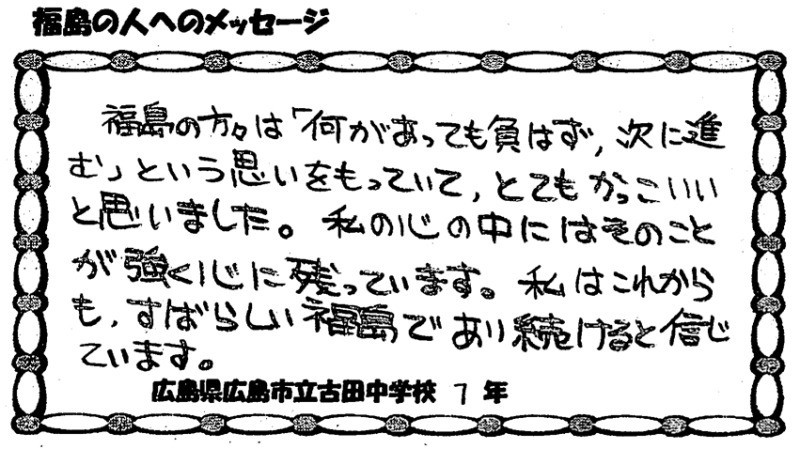 福島の人へのメッセージ
福島の方々は「何があっても負はず,次に進
む」という思いをもっていて,とてもかっこいい
と思いました。私の心の中にはそのこと
が強く心に残っています。私はこれから
も,すばらしい福島であり続けると信じ
ています。
広島県広島市立古田中学校 1 年